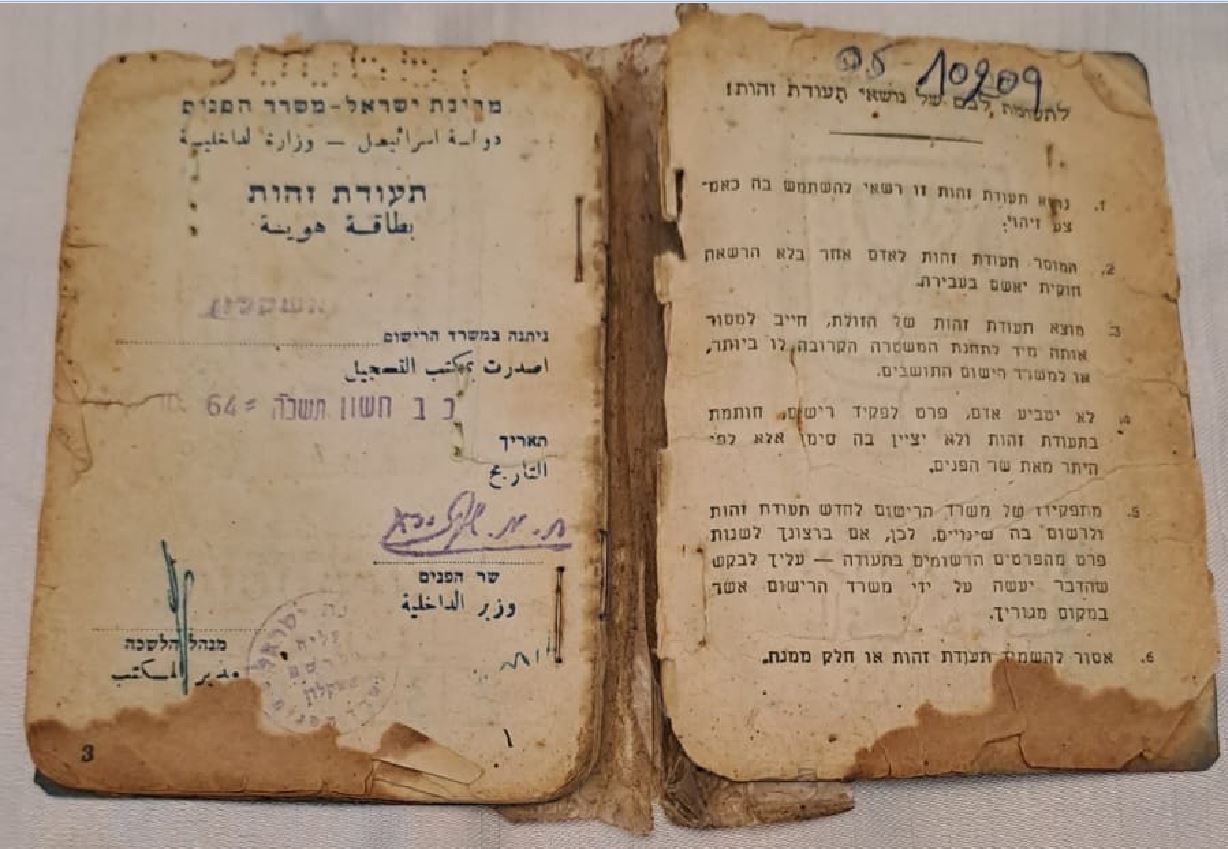 05 10209
לתשומת לבם של נושאי תעודת זהות!
1. נושא תעודת זהות זו רשאי להשתמש בה כאמ־
צעי זיהוי.
2. המוסר תעודת זהות לאדם אחר בלא הרשאה
חוקית יאשם בעבירה.
3. מוצא תעודת זהות של הזולת, חייב למסור
אותה מיד לתחנת המשטרה הקרובה לו ביותר,
או למשרד רישום התושבים.
4. לא יטביע אדם, פרט לפקיד רישום, חותמת
בתעודת זהות ולא יציין בה סימן אלא לפי
היתר מאת שר הפנים.
5. מתפקידו של משרד הרישום לחדש תעודת זהות
ולרשום בה שינויים. לכן, אם ברצונך לשנות
פרט מהפרטים הרשומים בתעודה — עליך לבקש
שהדבר יעשה על ידי משרד הרישום אשר
במקום מגוריך.
6. אסור להשמיד תעודת זהות או חלק ממנה.
מדינת ישראל-משרד הפנים
دولة اسرائيل — وزارة الداخلية
תעודת זהות
بطاقة هوية
אשקלון
ניתנה במשרד הרישום
اصدرت بمكتب التسجيل
כ ב חשון תשכ"ה = 64
תאריך
التاريخ
ח. מ. שפירא
שר הפנים
وزير الداخلية
מנהל הלשכה
مدير المكتب
3